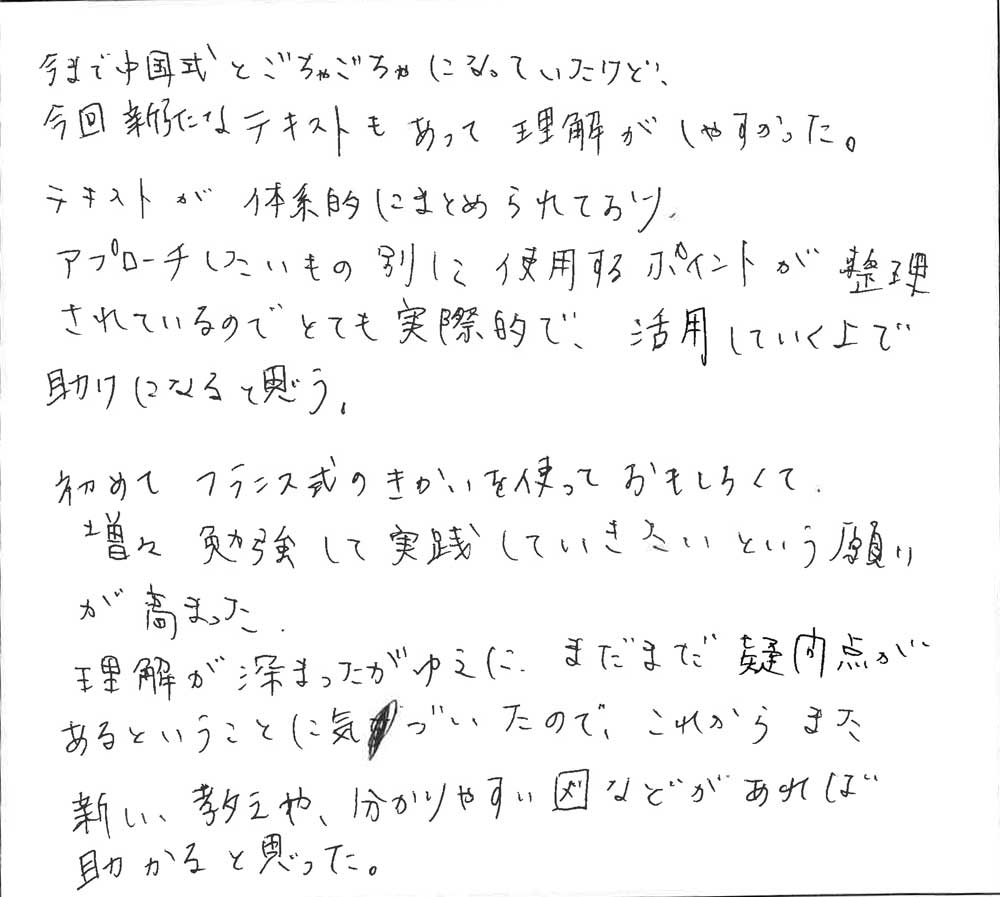 今まで中国式とごちゃごちゃになっていたけど、
今回新たなテキストもあって理解がしやすかった。
テキストが体系的にまとめられており、
アプローチしたいもの別に使用するポイントが整理
されているのでとても実際的で、活用していく上で
助けになると思う。
初めてフランス式のきかいを使っておもしろくて、
増々勉強して実践していきたいという願い
が高まった。
理解が深まったがゆえに、まだまだ疑問点が
あるということに気づいたので、これからまた
新しい教えや、分かりやすい図などがあれば
助かると思った。